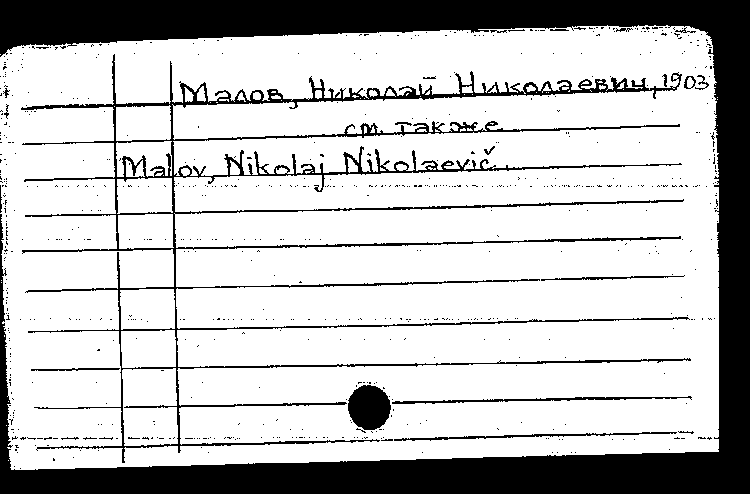 Малов, Николай Николаевич, 1903
см. также
Malov, Nikolaj Nikolaevič.